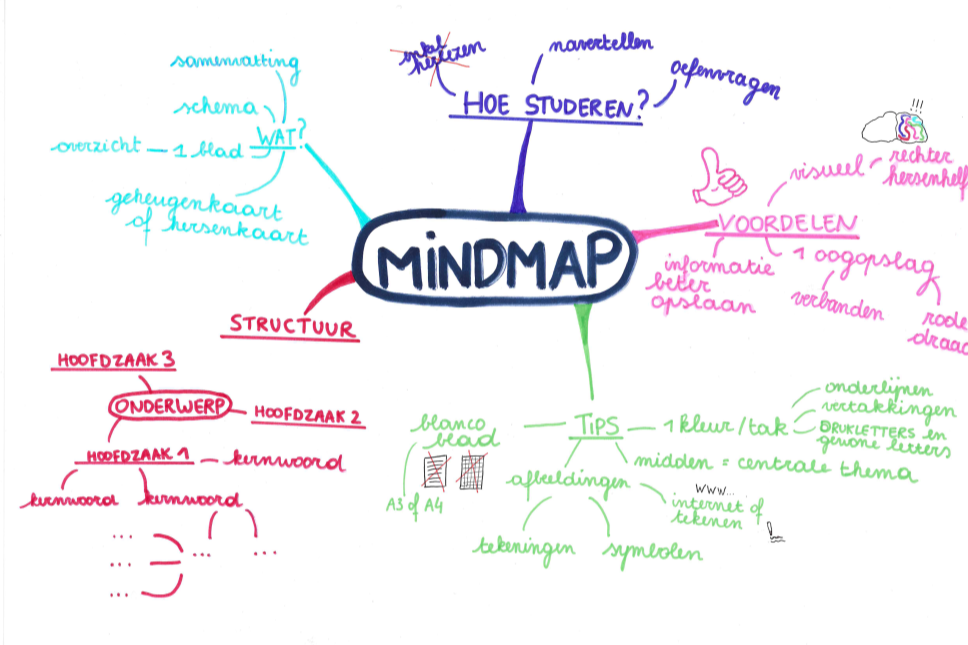 MiNDMAP
WAT?
samenvatting
schema
overzicht – 1 blad
geheugenkaart
of hersenkaart
HOE STUDEREN?
enkel
herlezen
navertellen
oefenvragen
VOORDELEN
visueel
rechter
hersenhelf
!!!
informatie
beter
opslaan
1 oogopslag
verbanden
rode
draad
TiPS
1 kleur/tak
onderlijnen
vertakkingen
DRUKLETTERS en
gewone letters
midden = centrale thema
blanco
blad
A3 of A4
afbeeldingen
www...
internet of
tekenen
tekeningen
symbolen
STRUCTUUR
HOOFDZAAK 3
ONDERWERP
HOOFDZAAK 2
HOOFDZAAK 1
kernwoord
kernwoord
kernwoord
...
...
...
...
...